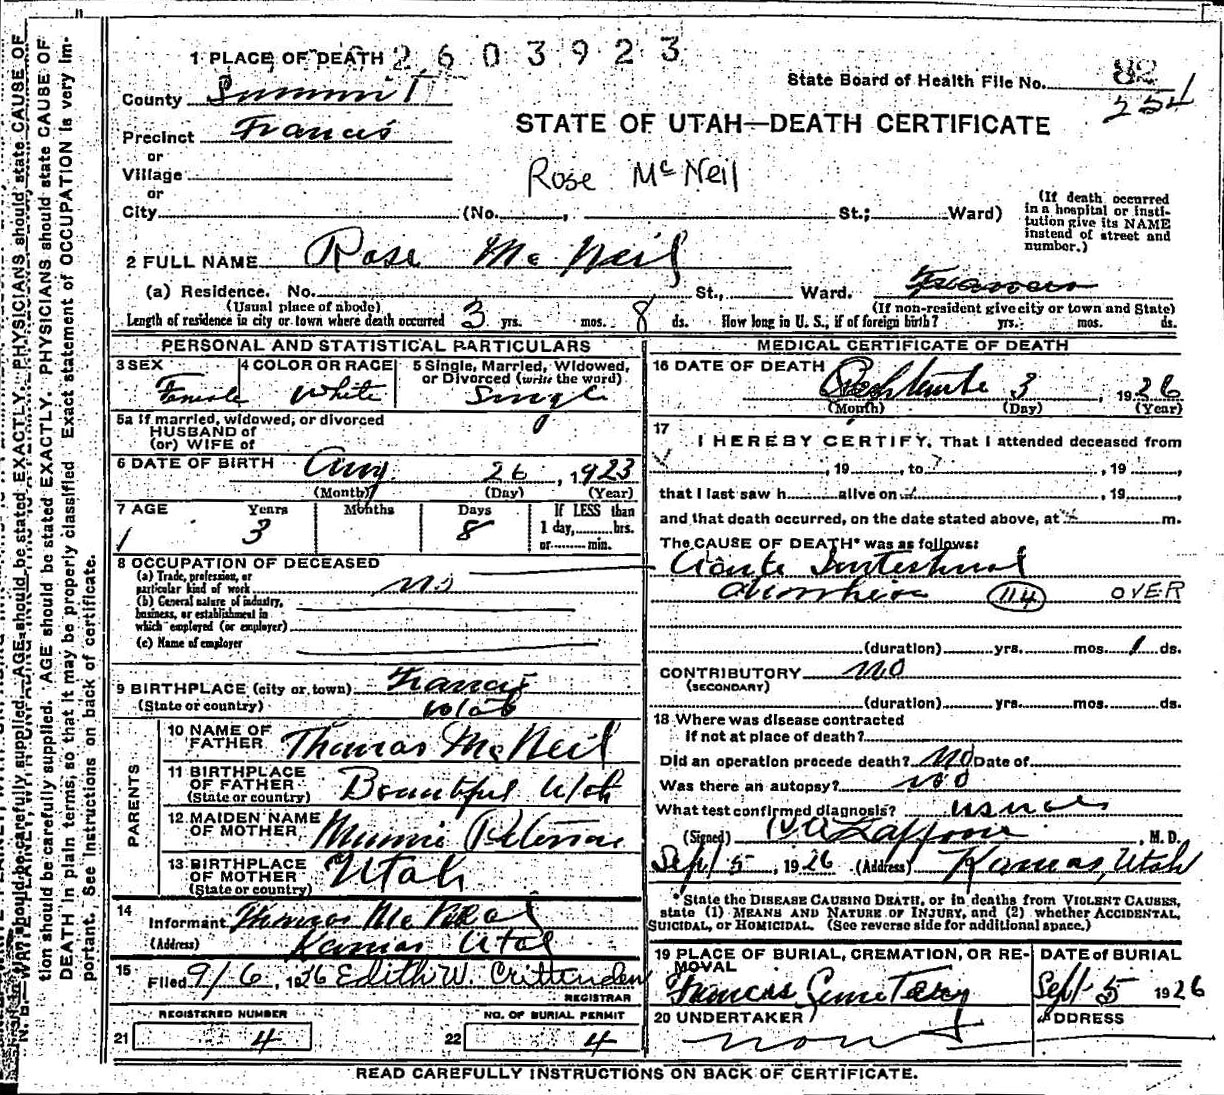 1 PLACE OF DEATH 2603923
State Board of Health File No. 82
254
County Summit
Precinct Francis
STATE OF UTAH—DEATH CERTIFICATE
or
Village
Rose McNeil
or
City (No. , St.; Ward)
(If death occurred
in a hospital or insti-
tution give its NAME
instead of street and
number.)
2 FULL NAME Rose Mc Neil
(a) Residence. No. St., Ward.
(Usual place of abode) (If non-resident give city or town and State)
Length of residence in city or town where death occurred 3 yrs. mos. 8 ds. How long in U. S., if of foreign birth? yrs. mos. ds.
PERSONAL AND STATISTICAL PARTICULARS
3 SEX
Female
4 COLOR OR RACE
White
5 Single, Married, Widowed,
or Divorced (write the word)
Single
5a If married, widowed, or divorced
HUSBAND of
(or) WIFE of
6 DATE OF BIRTH Aug 26, 1923
(Month) (Day) (Year)
7 AGE Years Months Days
3 8
If LESS than
1 day, hrs.
or min.
8 OCCUPATION OF DECEASED
(a) Trade, profession, or
particular kind of work no
(b) General nature of industry,
business, or establishment in
which employed (or employer)
(c) Name of employer
9 BIRTHPLACE (city or town) Francis
(State or country) Utah
PARENTS
10 NAME OF
FATHER Thomas McNeil
11 BIRTHPLACE
OF FATHER Bountiful Utah
(State or country)
12 MAIDEN NAME
OF MOTHER Minnie Peterson
13 BIRTHPLACE
OF MOTHER Utah
(State or country)
14
Informant Thomas McNeil
(Address) Kamas Utah
15
Filed 9/6, 1926 Edith W. Crittenden
REGISTRAR
REGISTERED NUMBER
21 4
NO. OF BURIAL PERMIT
22 4
MEDICAL CERTIFICATE OF DEATH
16 DATE OF DEATH
3, 1926
(Month) (Day) (Year)
17
I HEREBY CERTIFY, That I attended deceased from
, 19 , to , 19 ,
that I last saw h alive on , 19 ,
and that death occurred, on the date stated above, at m.
The CAUSE OF DEATH* was as follows:
Acute Intestinal
114 OVER
(duration) yrs. mos. 1 ds.
CONTRIBUTORY no
(SECONDARY)
(duration) yrs. mos. ds.
18 Where was disease contracted
if not at place of death?
Did an operation precede death? no Date of
Was there an autopsy? no
What test confirmed diagnosis? usual
(Signed) , M. D.
Sept 5, 1926 (Address) Kamas, Utah
*State the DISEASE CAUSING DEATH, or in deaths from VIOLENT CAUSES,
state (1) MEANS AND NATURE OF INJURY, and (2) whether ACCIDENTAL,
SUICIDAL, or HOMICIDAL. (See reverse side for additional space.)
19 PLACE OF BURIAL, CREMATION, OR RE-
MOVAL
Francis Cemetary
DATE of BURIAL
Sept 5 1926
20 UNDERTAKER
none
ADDRESS
READ CAREFULLY INSTRUCTIONS ON BACK OF CERTIFICATE.
tion should be carefully supplied. AGE should be stated EXACTLY. PHYSICIANS should state CAUSE OF
DEATH in plain terms, so that it may be properly classified. Exact statement of OCCUPATION is very im-
portant. See instructions on back of certificate.